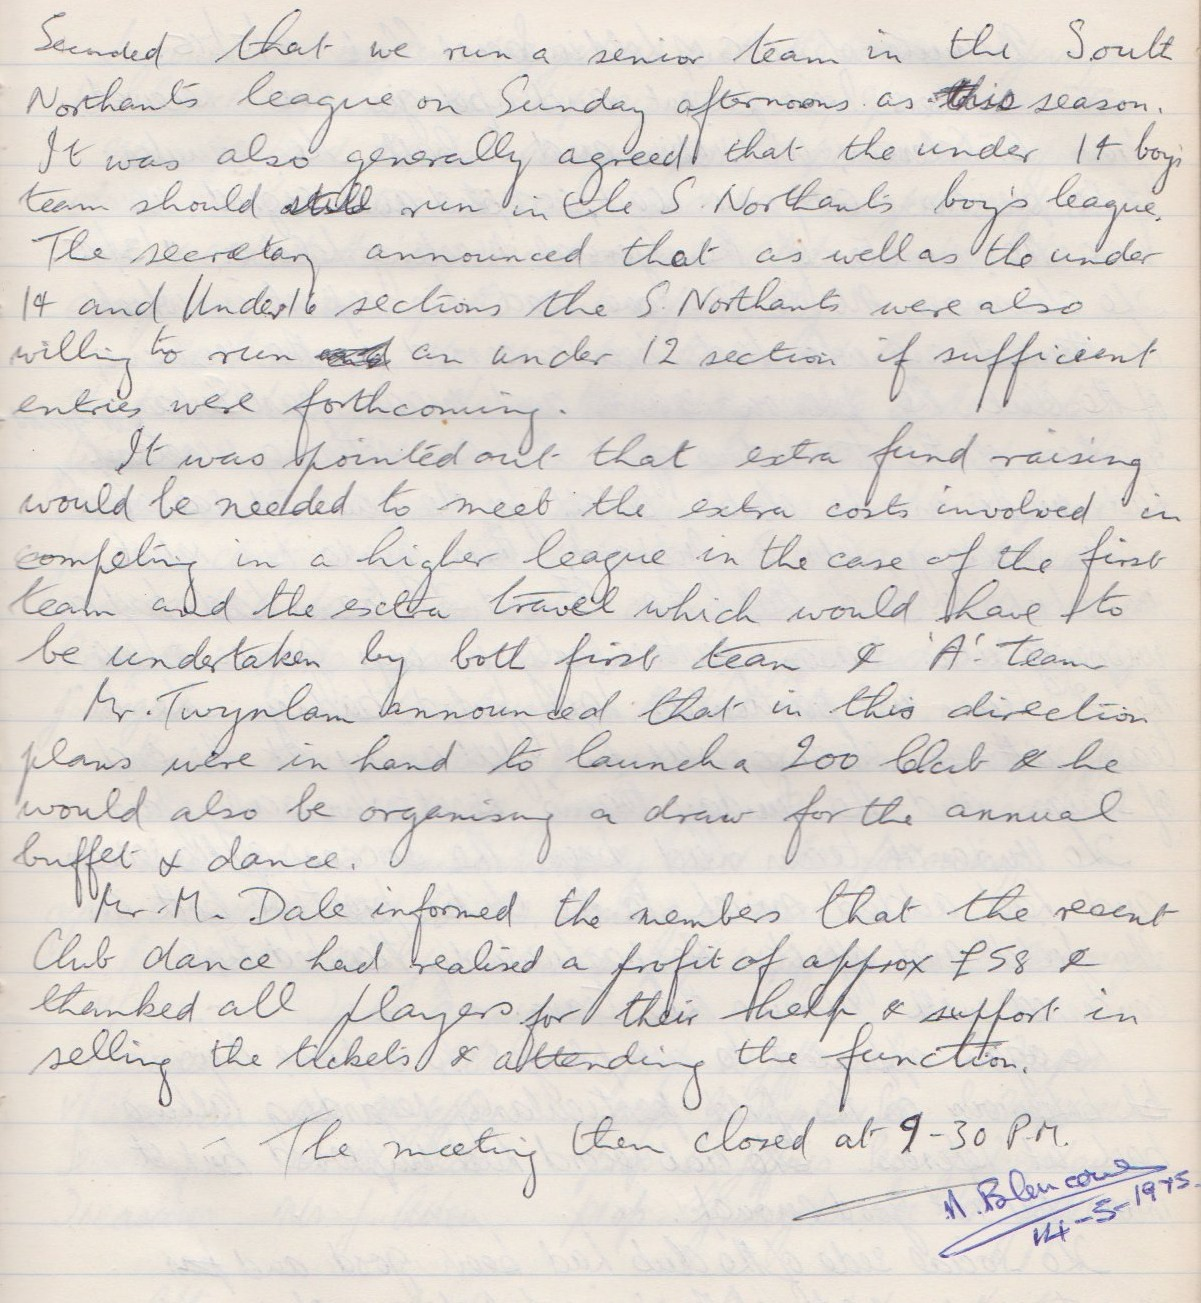 Seconded that we run a senior team in the South
Northants league on Sunday afternoons as this season.
It was also generally agreed that the under 14 boys
team should still run in the S. Northants boy's league.
The secretary announced that as well as the under
14 and Under 16 sections the S. Northants were also
willing to run an under 12 section if sufficient
entries were forthcoming.
It was pointed out that extra fund raising
would be needed to meet the extra costs involved in
competing in a higher league in the case of the first
team and the extra travel which would have to
be undertaken by both first team & 'A' team
Mr. Twynham announced that in this direction
plans were in hand to launch a 200 Club & he
would also be organising a draw for the annual
buffet & dance.
Mr. M. Dale informed the members that the recent
Club dance had realised a profit of approx £58 &
thanked all players for their help & support in
selling the tickets & attending the function.
The meeting then closed at 9-30 P.M.
M. Blencowe
14-5-1975